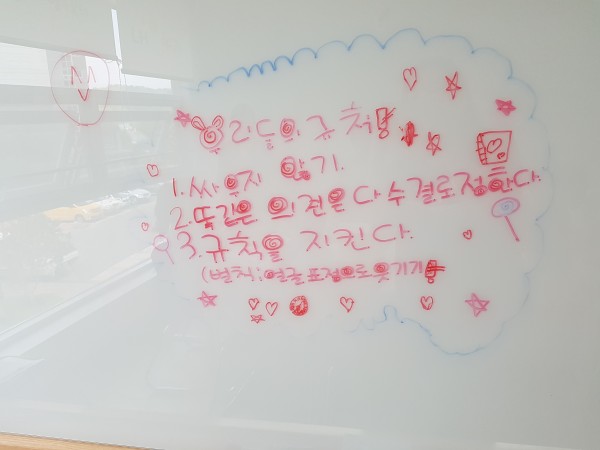 우리들의 규칙!
1. 싸우지 않기.
2. 똑같은 의견은 다수결로 정한다.
3. 규칙을 지킨다.
(벌칙; 얼굴 표정으로 웃기기